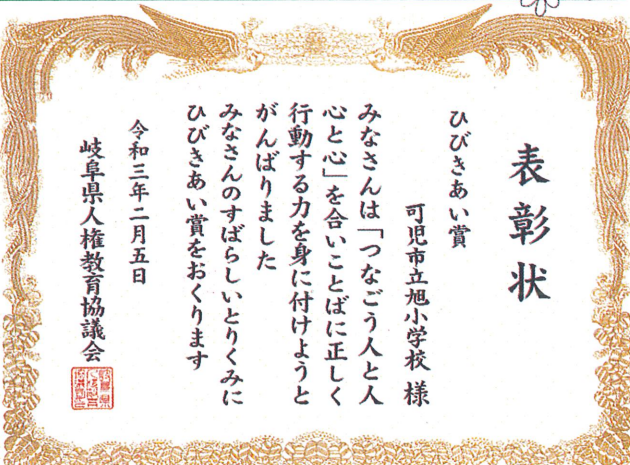 表彰状
ひびきあい賞
可児市立旭小学校 様
みなさんは「つなごう人と人
心と心」を合いことばに正しく
行動する力を身に付けようと
がんばりました
みなさんのすばらしいとりくみに
ひびきあい賞をおくります
令和三年二月五日
岐阜県人権教育協議会